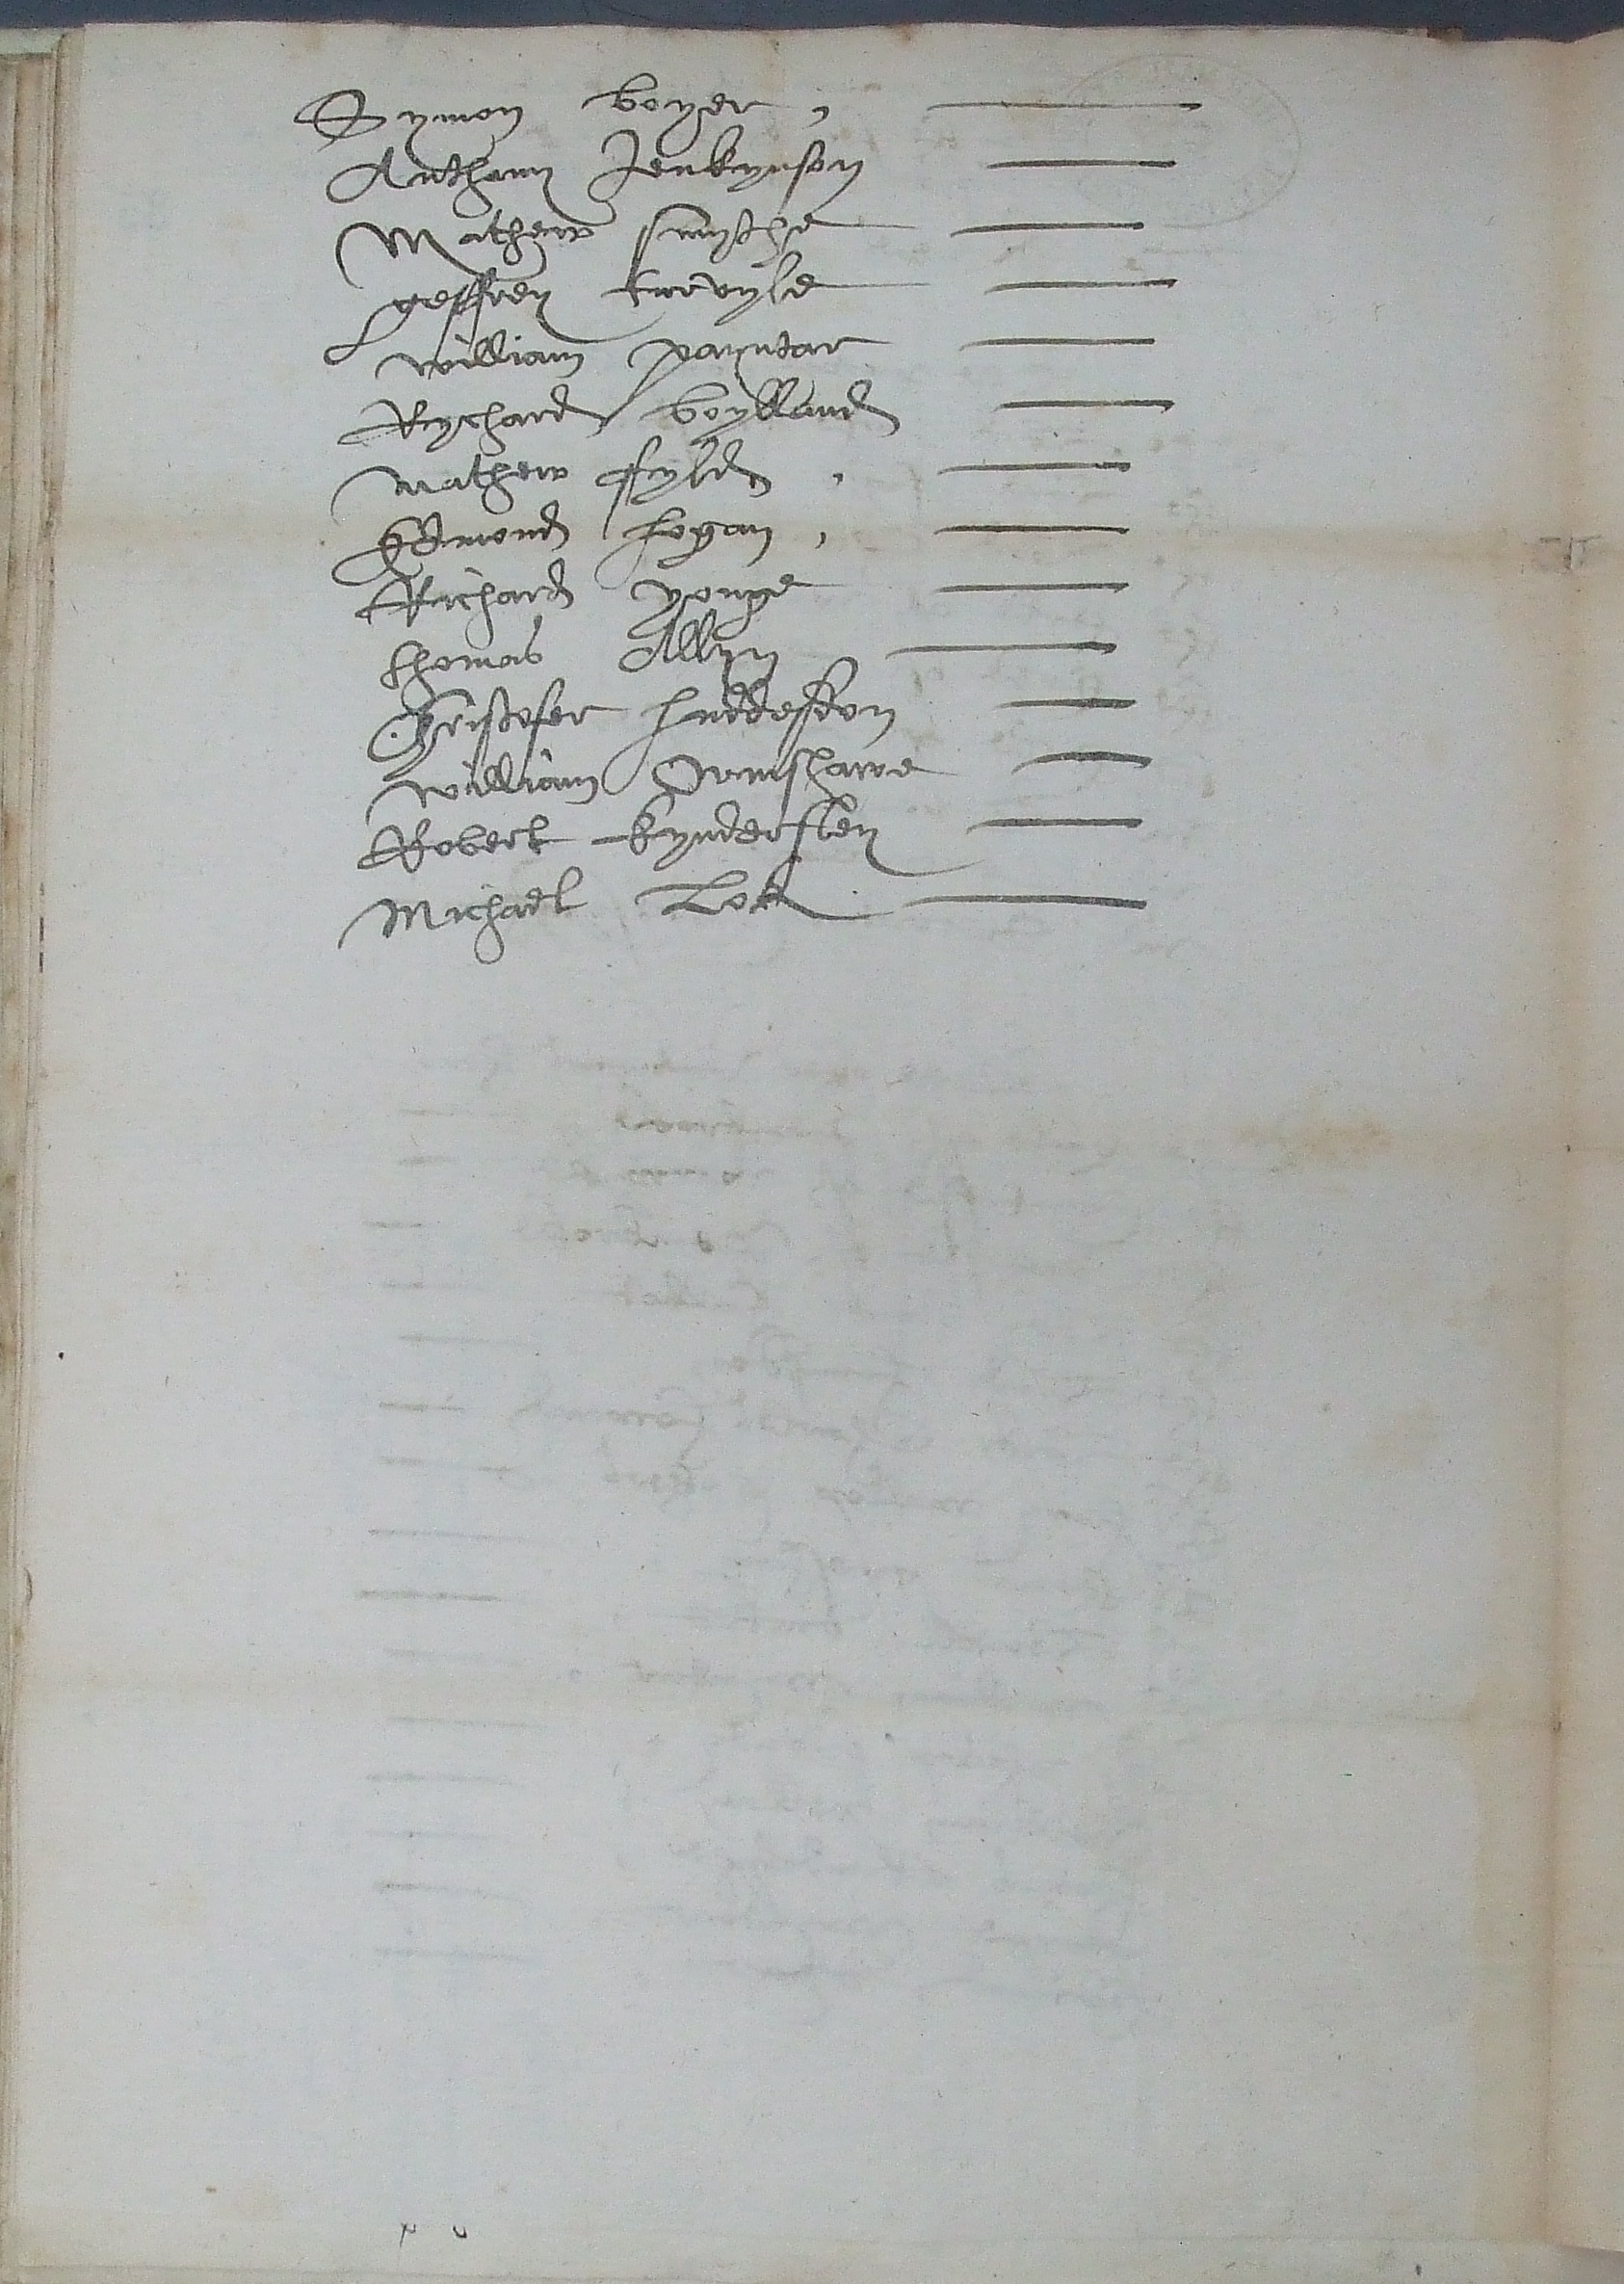 Symon boyer ,
Anthony Jenkynson
Mathew smythe
geffrey turvyle
william payntar
Rychard boylland
mathew ffyld ,
Edmond hogan ,
Richard yonge
thomas Allyn
Christofer huddesdon
william Ormshawe
Robert kyndersley
Michael Lok